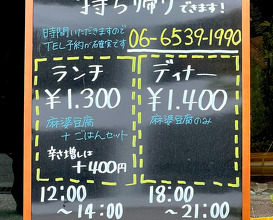 持ち帰りできます!
日時間いただきますので
TEL予約が確実です
06-6539-1990
ランチ
¥1.300
麻婆豆腐
+ごはんセット
辛さ増しは
+400円
12:00
~14:00
ディナー
¥1.400
麻婆豆腐のみ
18:00
~21:00